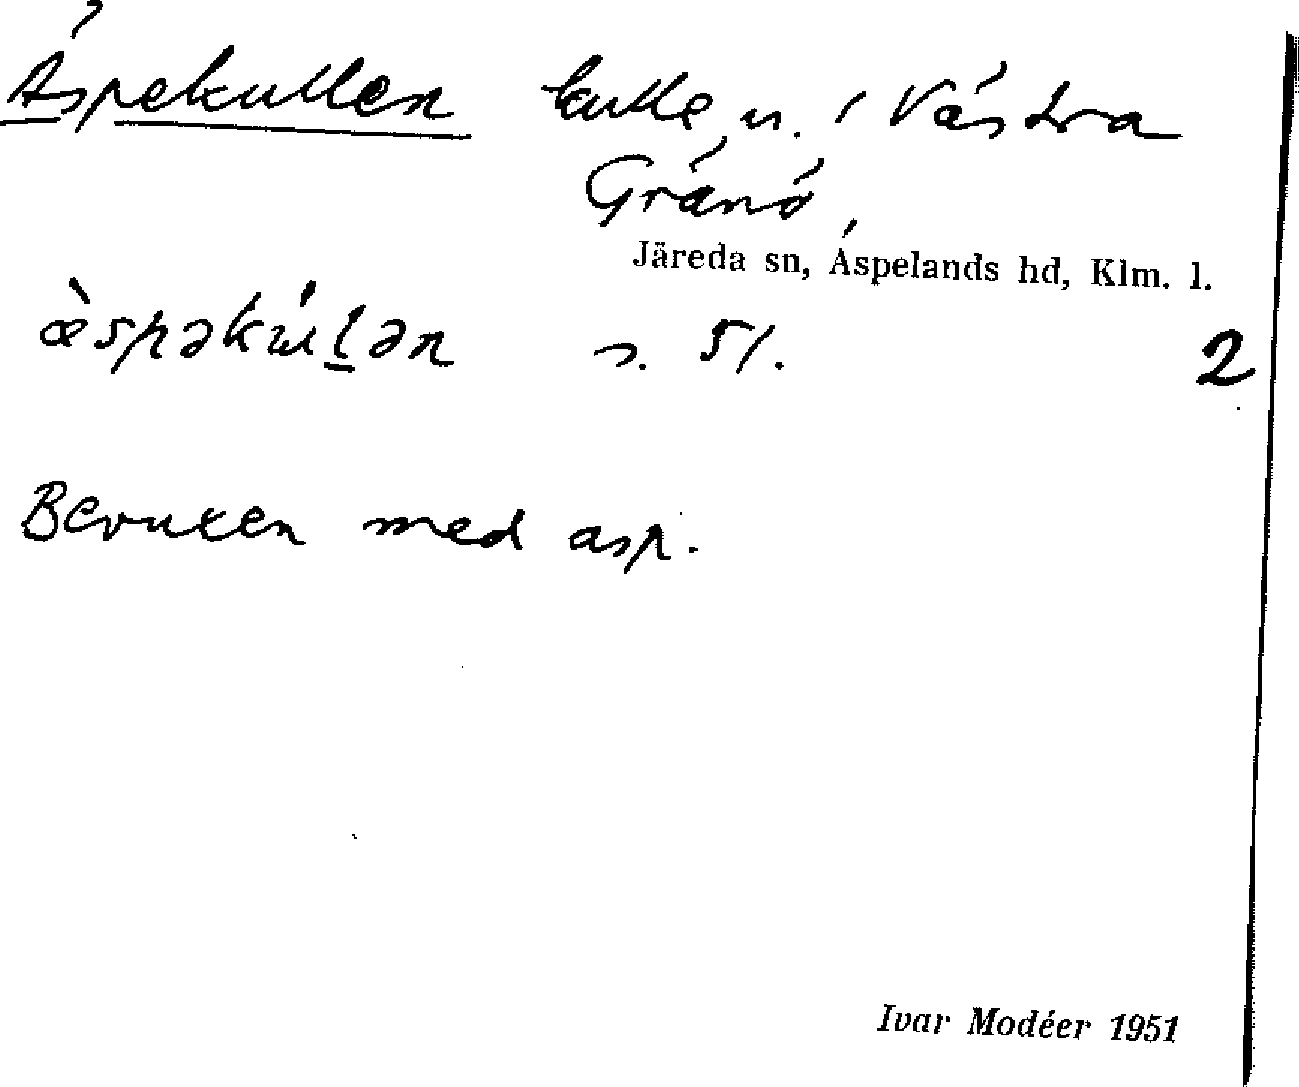 Äspekullen kulle, n. i Västra
Gränö,
Järeda sn, Aspelands hd, Klm. l.
æ̀spəkúl̲ən s. 51. 2
Bevuxen med asp.
Ivar Modéer 1951